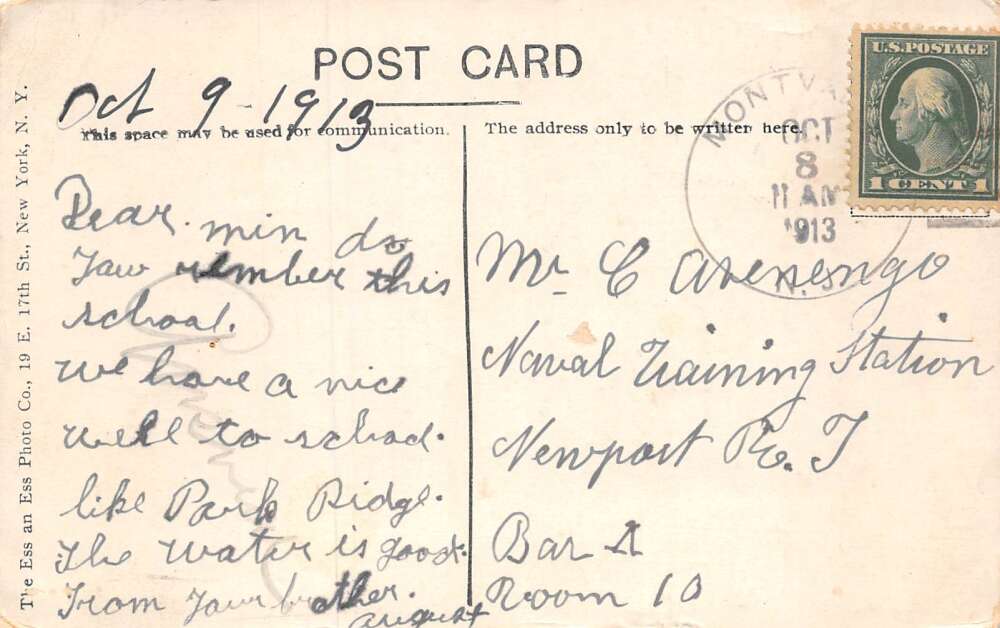 POST CARD
Oct 9 - 1913
This space may be used for communication.
The address only to be written here.
Dear min do
Yaw rember this
school.
We have a nice
well to school.
like Park Ridge.
the water is good.
From Yaur brother.
august
MONTVA
OCT
8
11 AM
1913
N.J.
U.S. POSTAGE
1 CENT 1
Mr C Avenengo
Naval Training Station
Newport R. I
Bar
Room 10
The Ess an Ess Photo Co., 19 E. 17th St., New York, N. Y.